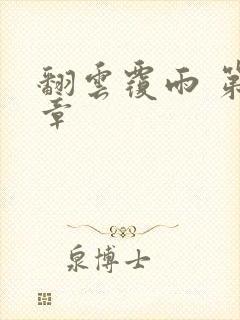 翻雲覆雨 第
章
泉博士